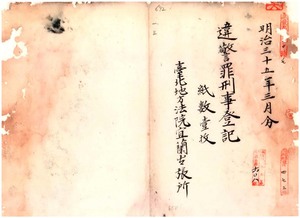 明治三十五年三月分
違警罪刑事登記
紙数壹枚
臺北地方法院宜蘭出張所